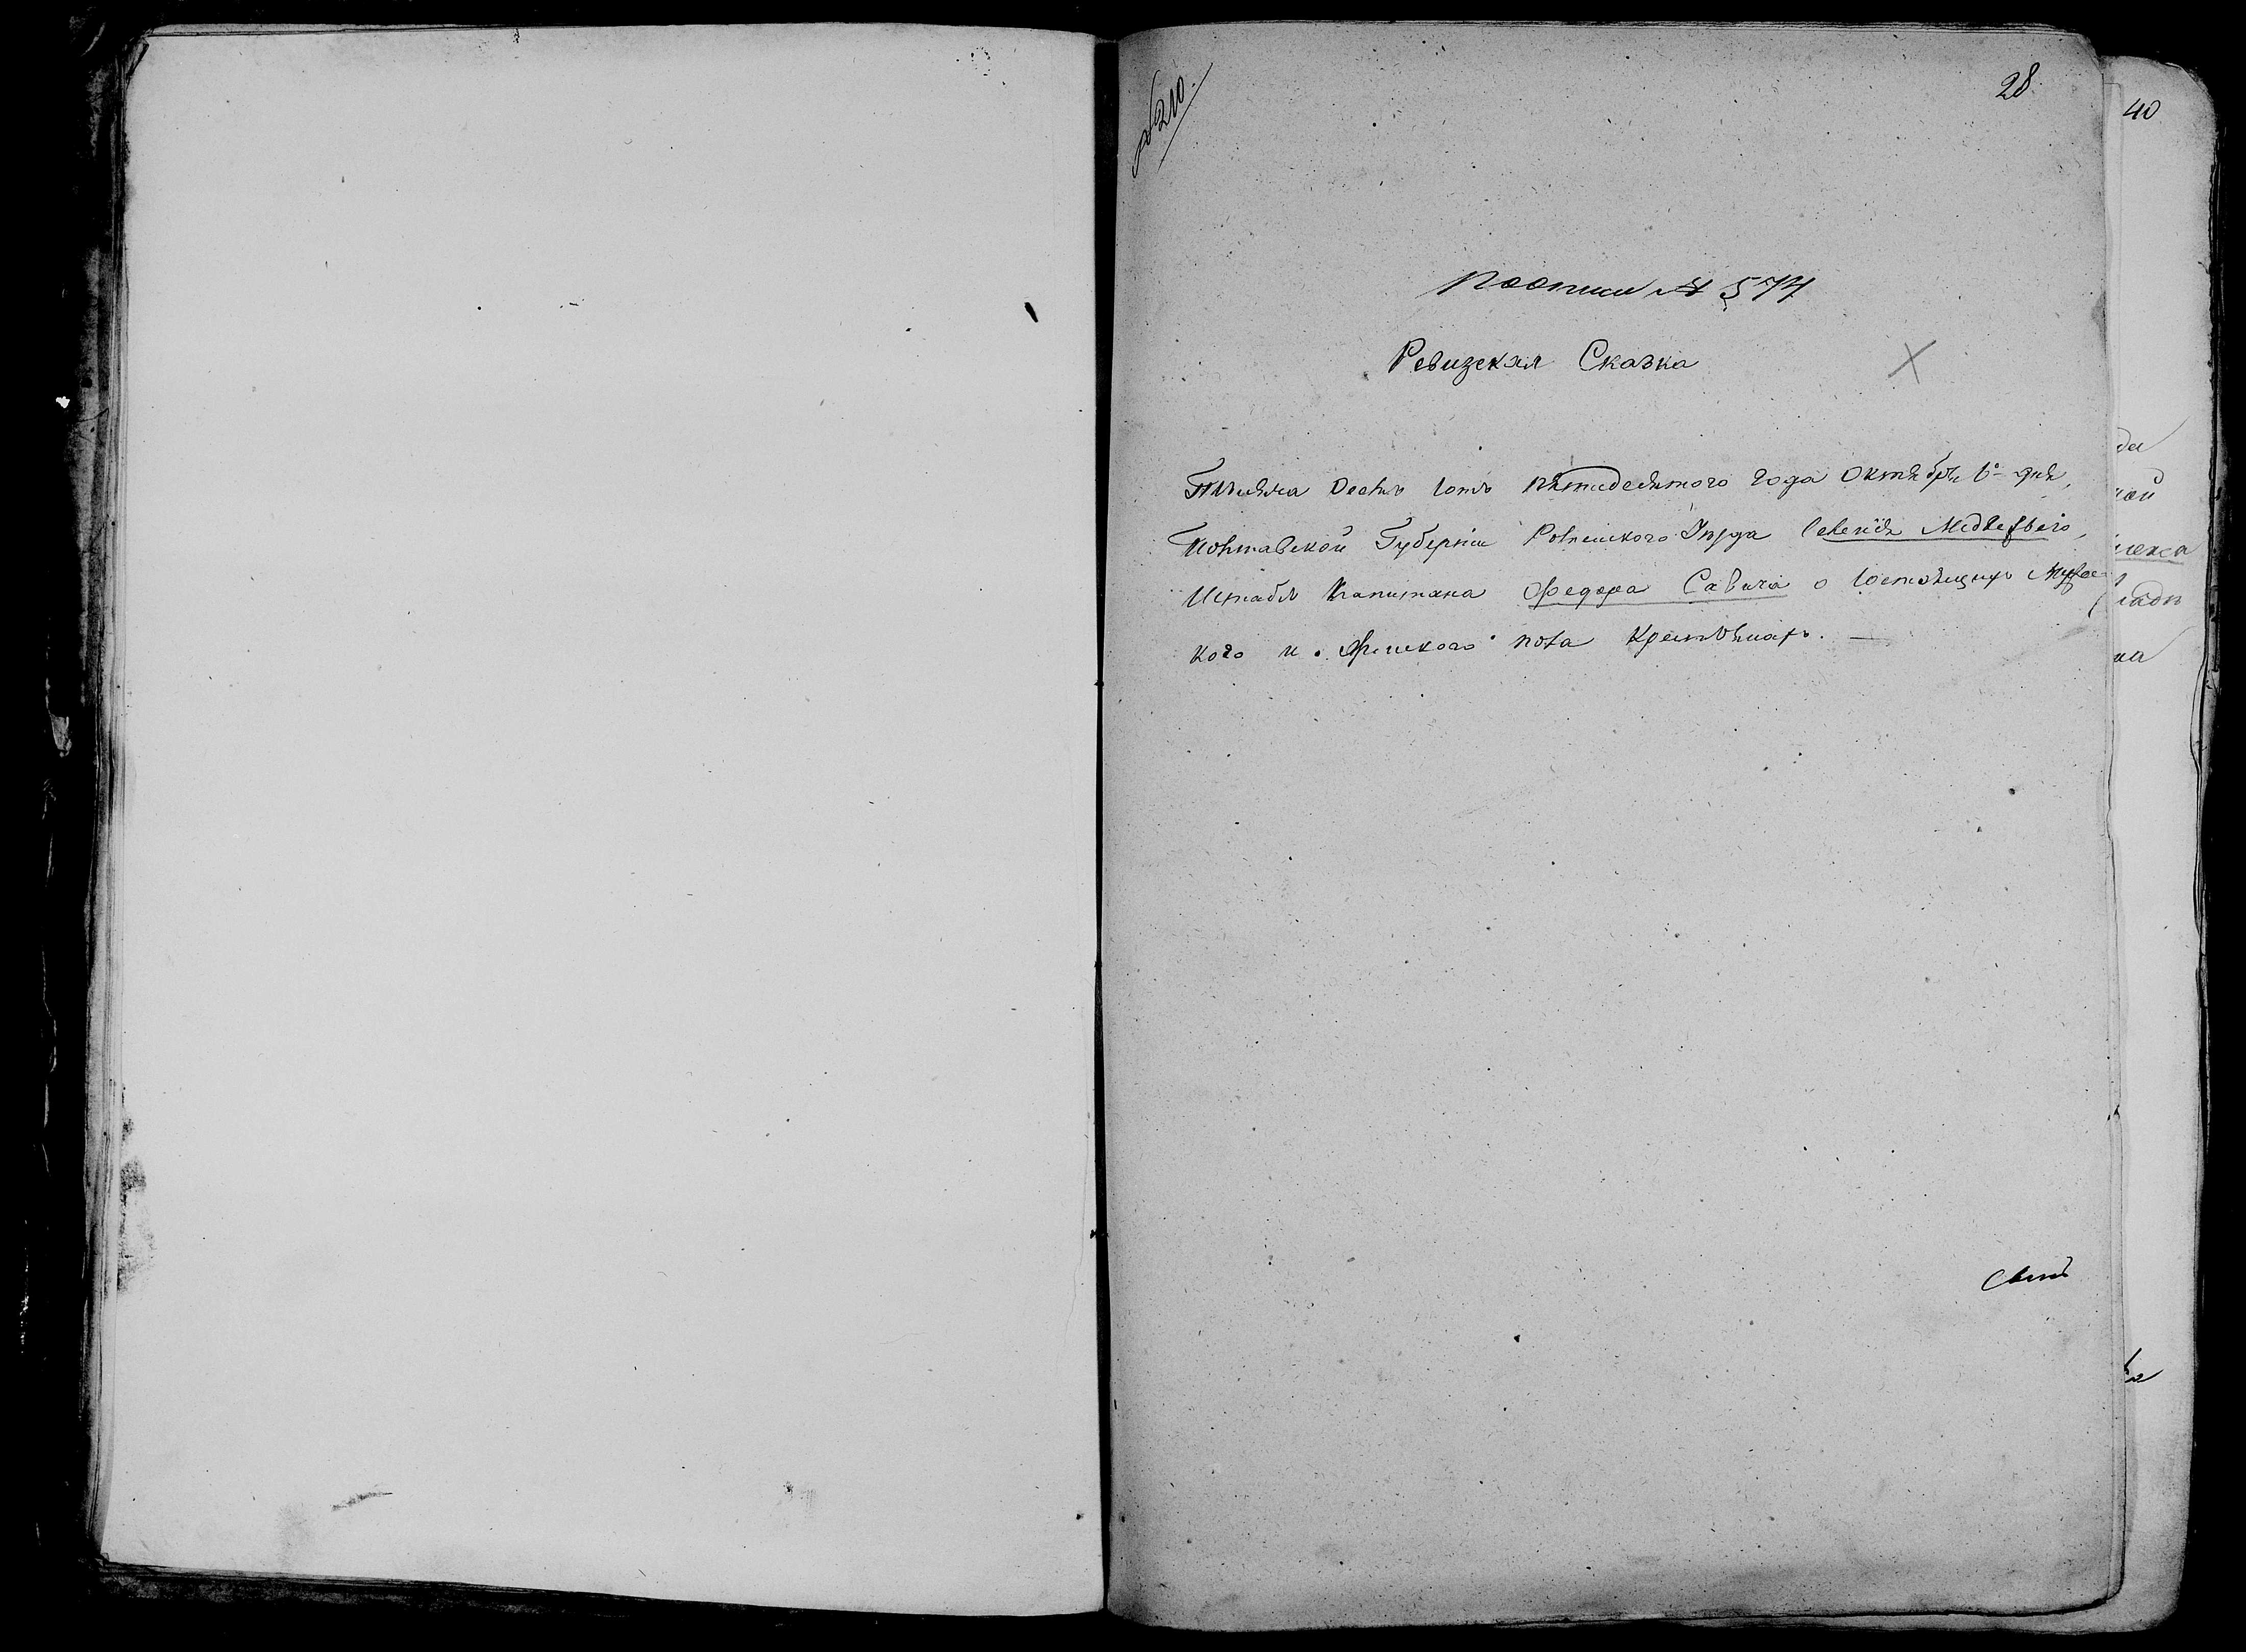 № 210.
28
По описи № 574
Ревизская Сказка
Тысяча Восемь Сотъ пятидесятого года Октября 6го дня,
Полтавской Губерніи Роменского Уезда Селенія Медвежьего,
Штабсъ Капитана Федора Савича о Состоящихъ Мужес-
кого и Женского пола Крестьянахъ. —
40